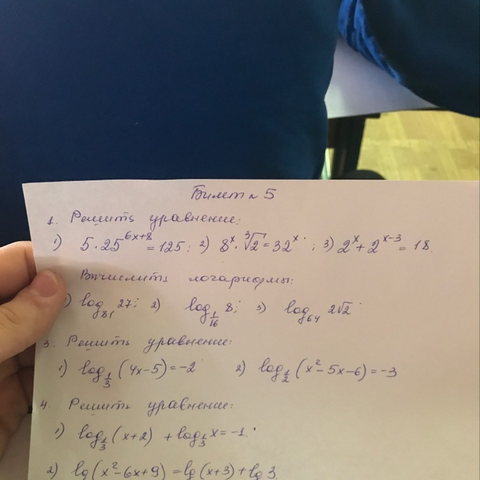 Билет № 5
1. Решить уравнение:
1) 5·25^{6x+8}=125; 2) 8^x·∛2=32^x; 3) 2^x+2^{x-3}=18
Вычислить логарифмы:
) log_{81} 27; 2) log_{1/16} 8; 3) log_{64} 2√2
3. Решить уравнение:
1) log_{1/3}(4x-5)=-2 2) log_{1/2}(x²-5x-6)=-3
4. Решить уравнение:
1) log_{1/3}(x+2)+log_{1/3}x=-1.
2) lg(x²-6x+9)=lg(x+3)+lg3